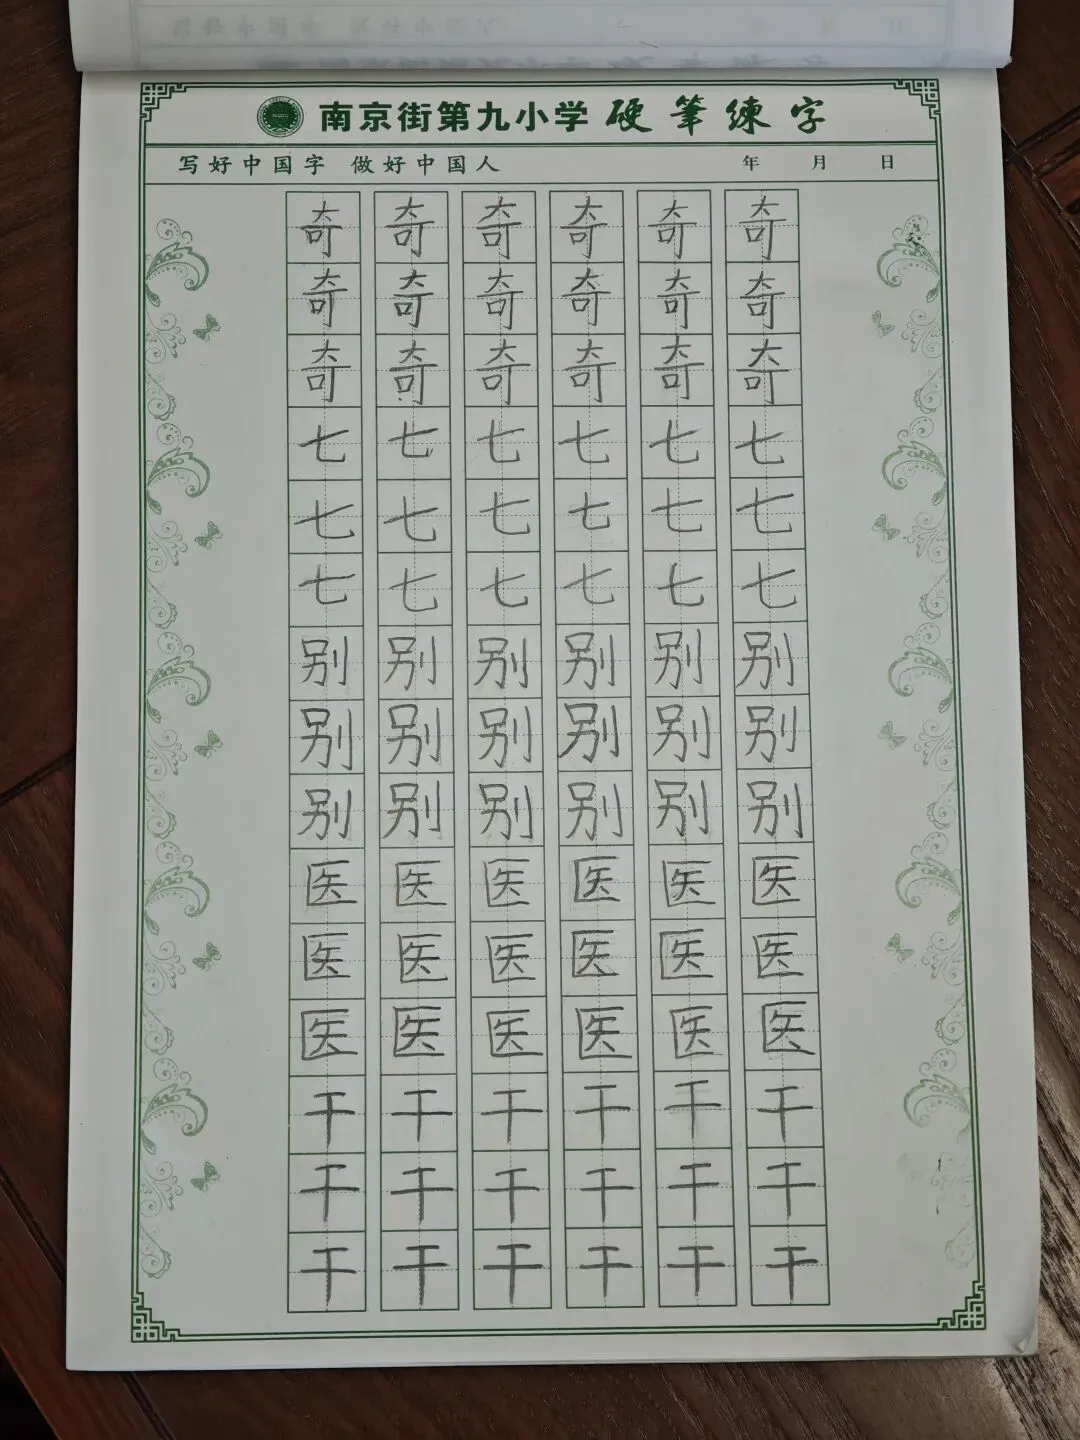 南京街第九小学 硬筆練字
写好中国字 做好中国人 年 月 日
奇 奇 奇 奇 奇 奇
奇 奇 奇 奇 奇 奇
奇 奇 奇 奇 奇 奇
七 七 七 七 七 七
七 七 七 七 七 七
七 七 七 七 七 七
别 别 别 别 别 别
别 别 别 别 别 别
别 别 别 别 别 别
医 医 医 医 医 医
医 医 医 医 医 医
医 医 医 医 医 医
干 干 干 干 干 干
干 干 干 干 干 干
干 干 干 干 干 干